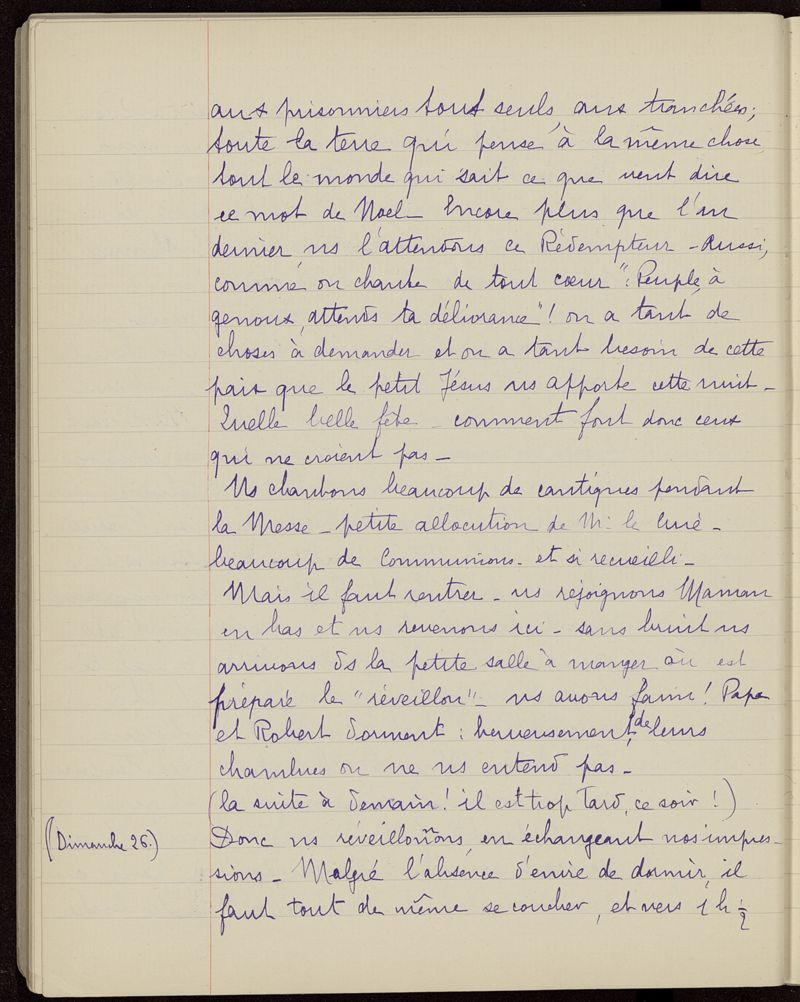 aux prisonniers tout seuls, aux tranchées;
toute la terre qui pense à la même chose,
tout le monde qui sait ce que veut dire
ce mot de Noel - Encore plus que l'an
dernier ns l'attendons ce Rédempteur - Aussi,
comme on chante de tout cœur ": Peuple, à
genoux, attends ta délivrance"! on a tant de
choses à demander et on a tant besoin de cette
paix que le petit Jésus ns apporte cette nuit -
Quelle belle fête - comment font donc ceux
qui ne croient pas -
Ns chantons beaucoup de cantiques pendant
la Messe - petite allocution de Mr le Curé -
beaucoup de Communions - et si recueilli -
Mais il faut rentrer - ns rejoignons Maman
en bas et ns revenons ici - sans bruit ns
arrivons ds la petite salle à manger où est
préparé le "réveillon" - ns avons faim! Papa
et Robert dorment : heureusement, de leurs
chambres on ne ns entend pas -
(la suite à demain! il est trop tard, ce soir!)
(Dimanche 26.) Donc ns réveillonnons, en échangeant nos impres-
sions - Malgré l'absence d'envie de dormir, il
faut tout de même se coucher, et vers 1 h 1/2